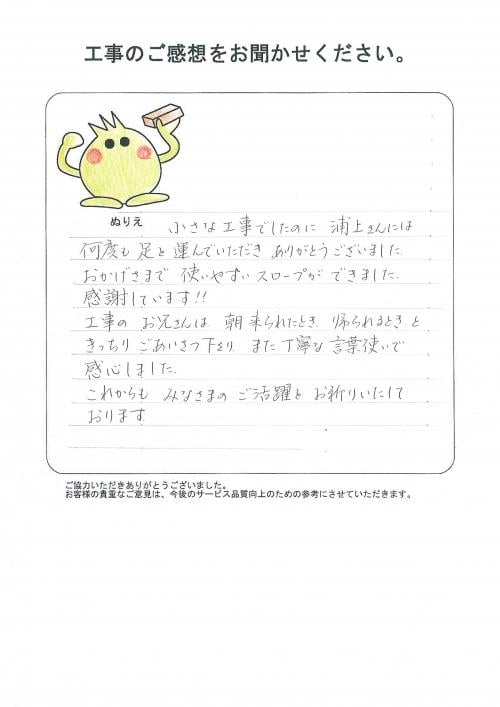 工事のご感想をお聞かせください。
ぬりえ
小さな工事でしたのに 浦上さんには
何度も 足を 運んでいただき ありがとうございました。
おかげさまで 使いやすい スロープが できました。
感謝しています!!
工事の お兄さんは、朝 来られたとき、帰られるとき と
きっちり ごあいさつ下さり、また 丁寧な 言葉使いで
感心しました。
これからも みなさまの ご活躍を お祈りいたして
おります。
ご協力いただきありがとうございました。
お客様の貴重なご意見は、今後のサービス品質向上のための参考にさせていただきます。